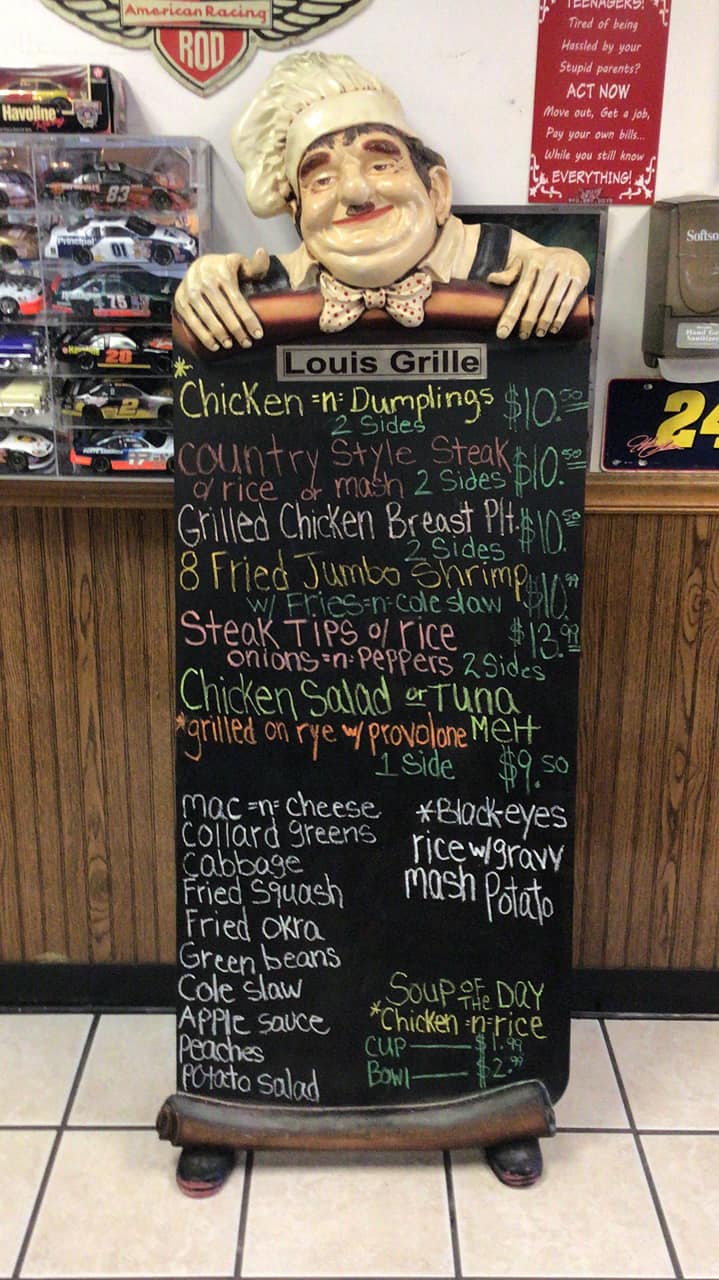 American Racing
ROD
Havoline
Racing
83
Principal
01
75
Havoline
28
2
TEENAGERS!
Tired of being
Hassled by your
Stupid parents?
ACT NOW
Move out, Get a job,
Pay your own bills...
While you still know
EVERYTHING!
Softso
Hand
Sanitizer
24
Louis Grille
*Chicken =n= Dumplings $10.50
2 Sides
Country Style Steak $10.50
o/rice or mash 2 Sides
Grilled Chicken Breast Plt. $10.50
2 Sides
8 Fried Jumbo Shrimp $10.99
w/ Fries=n=coleslaw
Steak Tips o/ rice $13.99
onions=n=Peppers 2 Sides
Chicken Salad or Tuna
*grilled on rye w/provolone Melt
1 Side $9.50
mac =n= cheese
collard greens
Cabbage
Fried Squash
Fried okra
Green beans
Cole slaw
Apple sauce
Peaches
potato salad
*Black-eyes
rice w/gravy
mash potato
Soup OF THE DAY
*Chicken =n=rice
CUP — $1.99
Bowl — $2.99